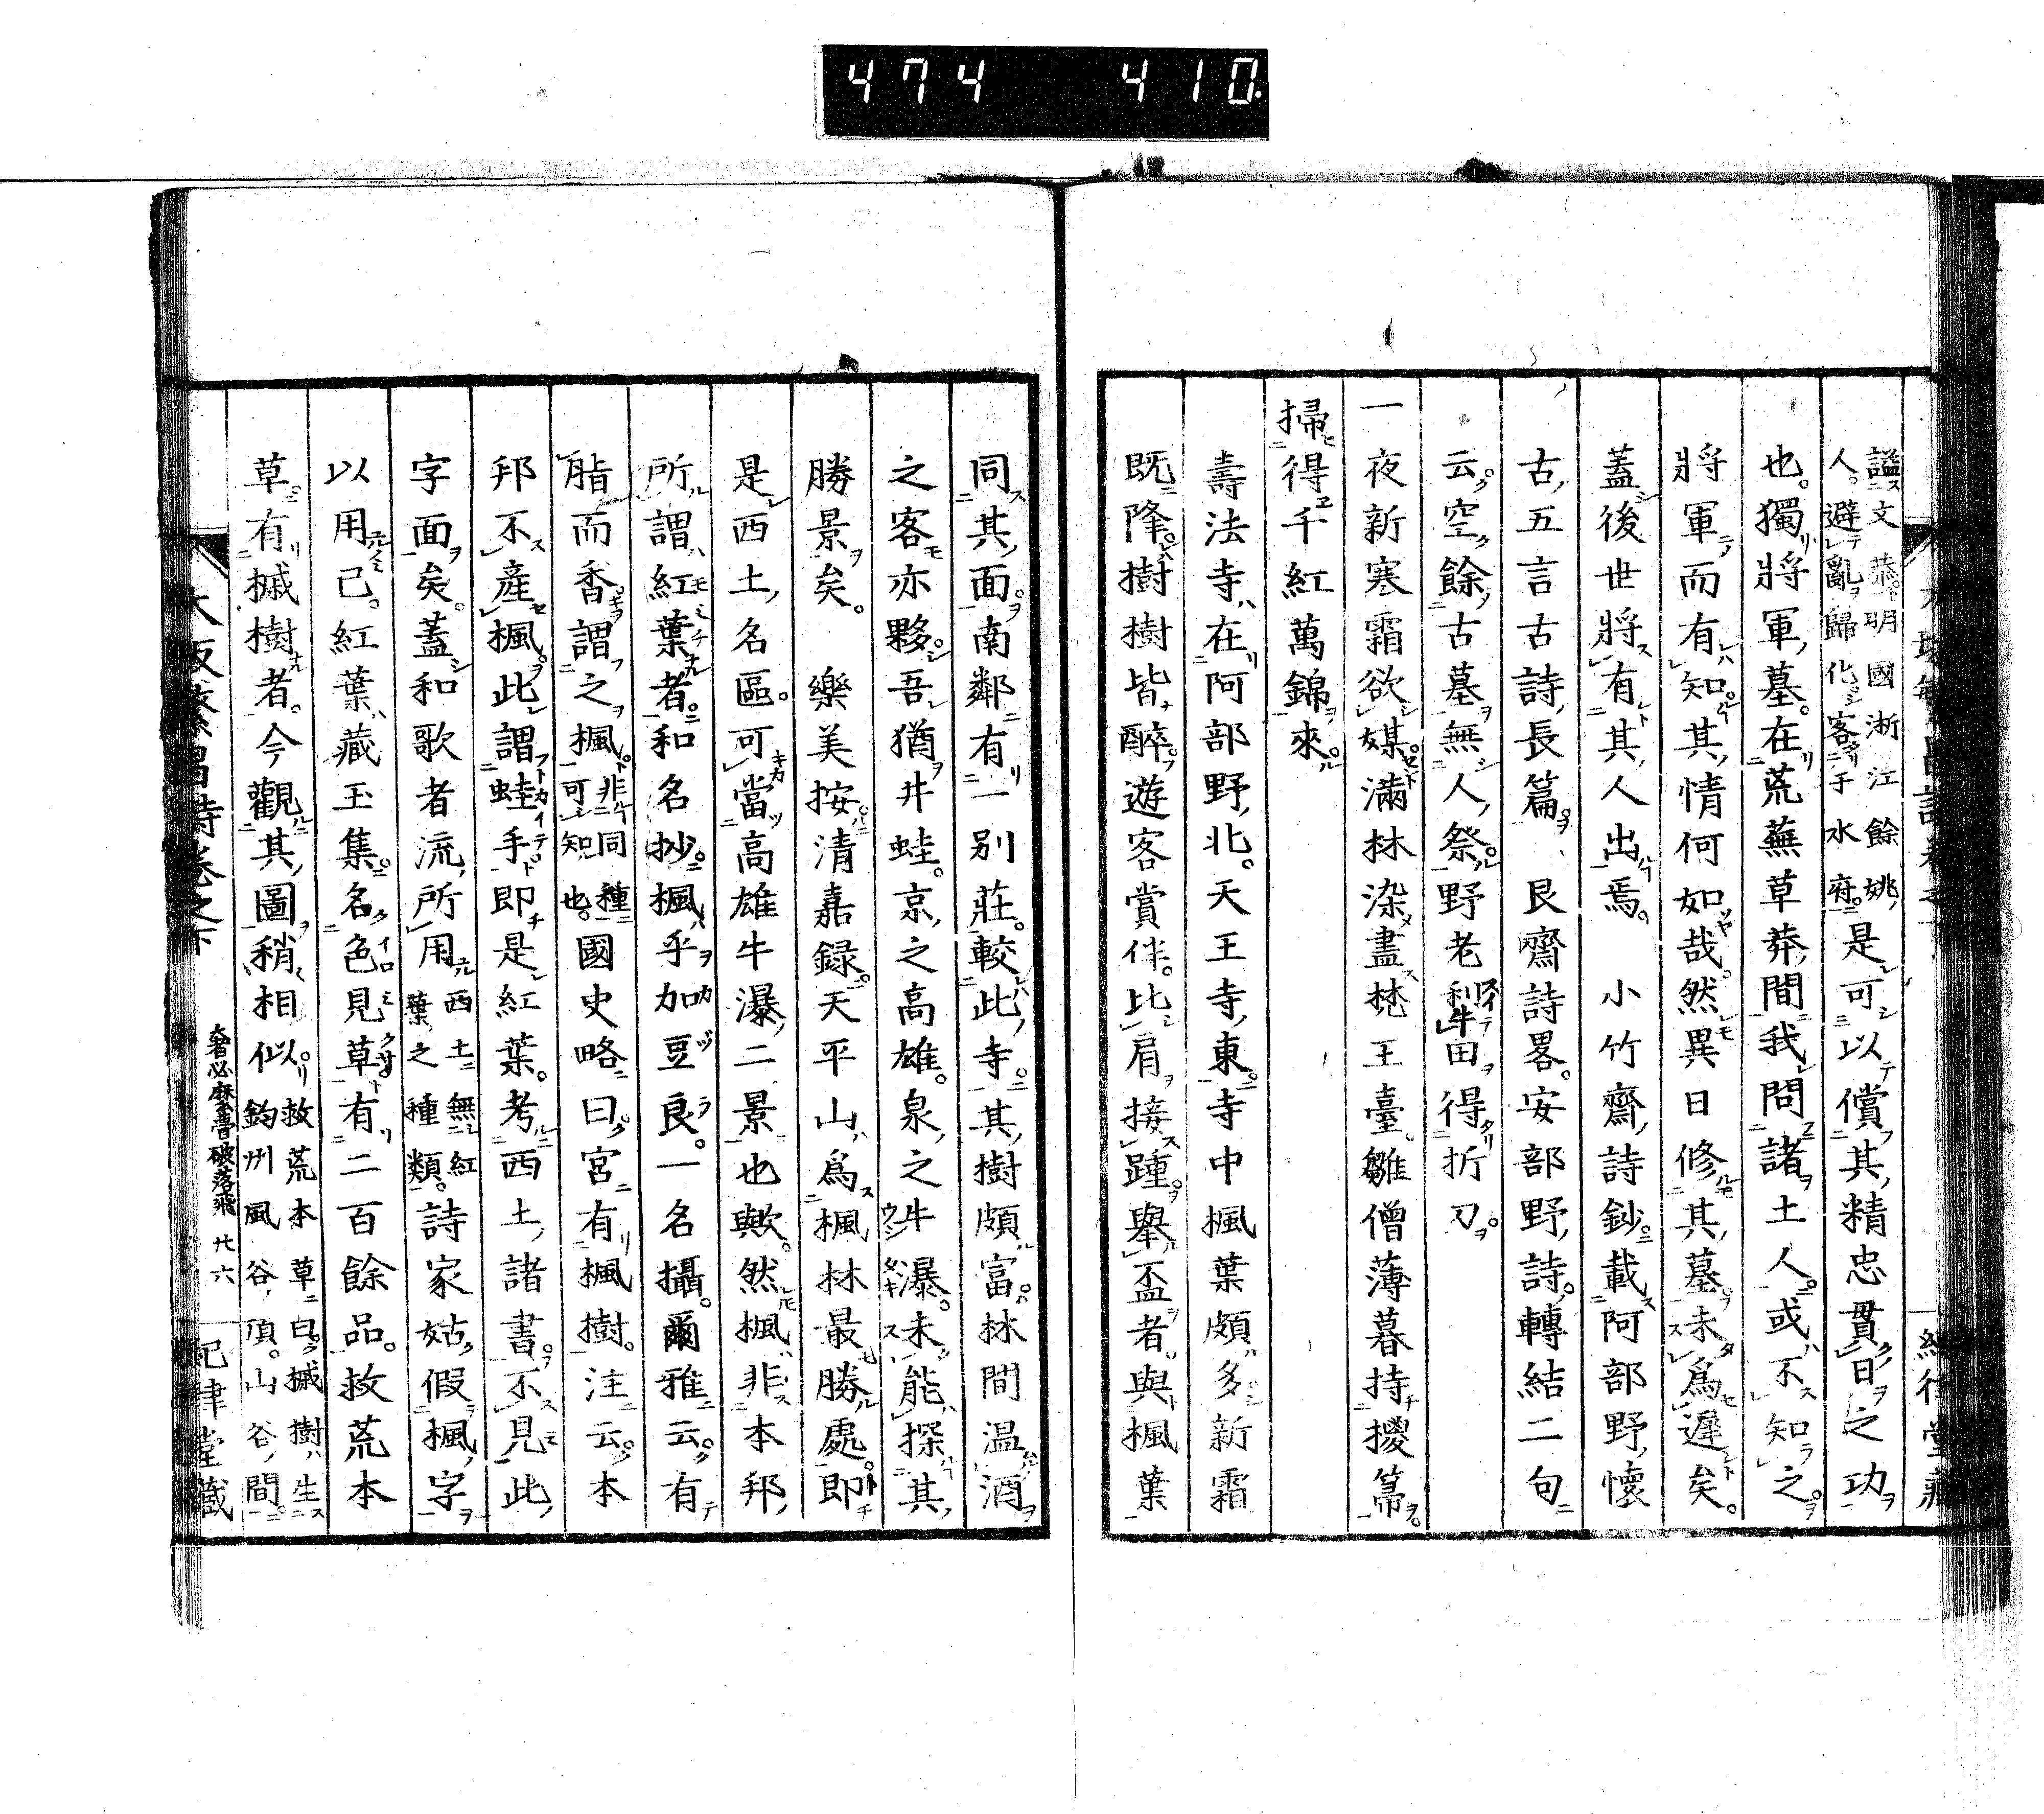 474 410
諡文恭。明國浙江餘姚
人。避亂歸化。客于水府。是可以償其精忠貫日之功
也。獨將軍墓。在荒蕪草莽間。我問諸土人。或不知之。
將軍而有知。其情何如哉。然異日修其墓。未爲遲矣。
蓋後世將有其人出焉。 小竹齋詩鈔。載阿部野懷
古五言古詩長篇。 艮齋詩畧。安部野詩。轉結二句
云。空餘古墓無人祭。野老犁田得折刀。
一夜新寒霜欲媒滿林染盡梵王臺雛僧薄暮持擾箒。
掃得千紅萬錦來。
壽法寺在阿部野北。天王寺東。寺中楓葉頗多。新霜
既降。樹樹皆醉。遊客賞伴。比肩接踵。舉盃者。與楓葉
同其面。南鄰有一別莊。較此寺。其樹頗富。林間温酒
之客亦夥。吾猶井蛙。京之高雄。泉之牛瀑。未能探其
勝景矣。 樂美按。清嘉録。天平山爲楓林最勝處。即
是西土名區。可當高雄牛瀑二景也歟。然楓非本邦
所謂紅葉者。和名抄。楓乎加豆良。一名攝。爾雅云。有
脂而香。謂之楓。非同種可知也。國史略曰。宮有楓樹。注云。本
邦不產楓。此謂蛙手。即是紅葉。考西土諸書。不見此
字面矣。蓋和歌者流所用。西土無紅葉之種類。詩家姑假楓字
以用已。紅葉藏玉集。名色見草。有二百餘品。救荒本
草。有槭樹者。今觀其圖。稍相似。救荒本草曰。槭樹生鈞州風谷頂。山谷間。
大阪繁昌詩卷之下
奢必麼 破落飛 廿六